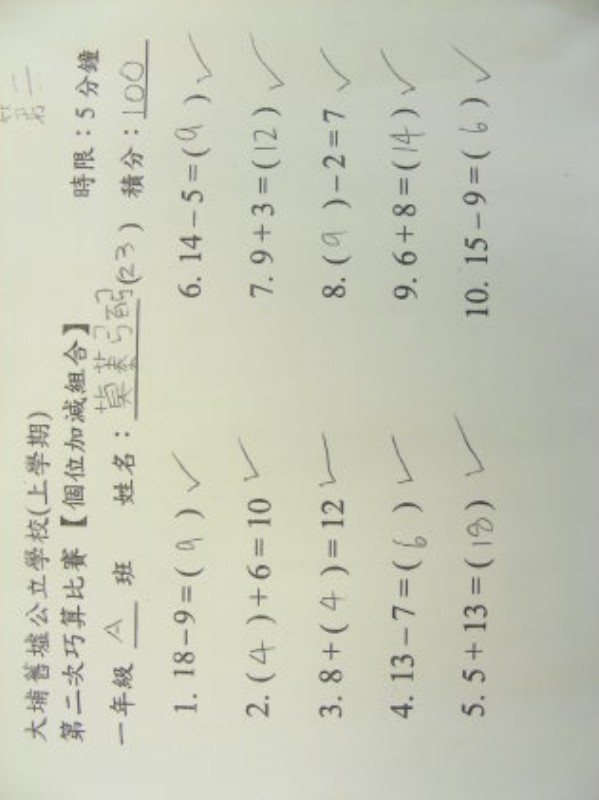 第二
大埔舊墟公立學校(上學期)
第二次巧算比賽【個位加減組合】 時限：5分鐘
一年級 A 班 姓名： (23) 積分：100
1. 18－9＝( 9 ) ✓ 6. 14－5＝( 9 ) ✓
2. ( 4 )＋6＝10 ✓ 7. 9＋3＝(12) ✓
3. 8＋( 4 )＝12 ✓ 8. ( 9 )－2＝7 ✓
4. 13－7＝( 6 ) ✓ 9. 6＋8＝(14) ✓
5. 5＋13＝(18) ✓ 10. 15－9＝( 6 ) ✓